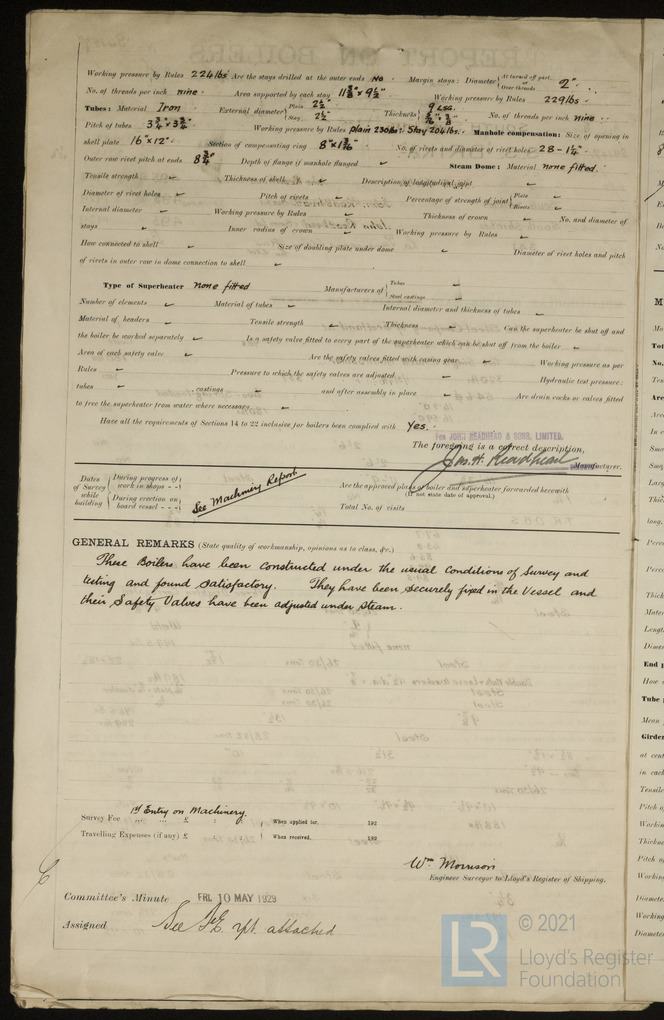 Working pressure by Rules 224 lbs Are the stays drilled at the outer ends No Margin stays: Diameter { At turned off part, or Over threads 2"
No. of threads per inch nine Area supported by each stay 11⅜" x 9½" Working pressure by Rules 229 lbs
Tubes: Material Iron External diameter { Plain 2½" Stay 2½" Thickness { No. of threads per inch nine
Pitch of tubes 3¾" x 3¾" Working pressure by Rules Plain 230 lbs Stay 204 lbs. Manhole compensation: Size of opening in
shell plate 16" x 12" Section of compensating ring No. of rivets and diameter of rivet holes 28 -
Outer row rivet pitch at ends 8¾" Depth of flange if manhole flanged Steam Dome: Material none fitted.
Tensile strength Thickness of shell Description of longitudinal joint
Diameter of rivet holes Pitch of rivets Percentage of strength of joint { Plate Rivets
Internal diameter Working pressure by Rules Thickness of crown No. and diameter of
stays Inner radius of crown Working pressure by Rules
How connected to shell Size of doubling plate under dome Diameter of rivet holes and pitch
of rivets in outer row in dome connection to shell
Type of Superheater none fitted Manufacturers of { Tubes Steel castings
Number of elements Material of tubes Internal diameter and thickness of tubes
Material of headers Tensile strength Thickness Can the superheater be shut off and
the boiler be worked separately Is a safety valve fitted to every part of the superheater which can be shut off from the boiler
Area of each safety valve Are the safety valves fitted with easing gear Working pressure as per
Rules Pressure to which the safety valves are adjusted Hydraulic test pressure:
tubes castings and after assembly in place Are drain cocks or valves fitted
to free the superheater from water where necessary
Have all the requirements of Sections 14 to 22 inclusive for boilers been complied with Yes.
For JOHN READHEAD & SONS, LIMITED.
The foregoing is a correct description,
Jas. H. Readhead Manufacturer.
Dates of Survey while building { During progress of work in shops - - } { During erection on board vessel - - - } See Machinery Report
Are the approved plans of boiler and superheater forwarded herewith
(If not state date of approval.)
Total No. of visits
GENERAL REMARKS (State quality of workmanship, opinions as to class, &c.)
These Boilers have been constructed under the usual Conditions of Survey and
testing and found satisfactory. They have been securely fixed in the Vessel and
their Safety Valves have been adjusted under steam.
1st Entry on Machinery.
Survey Fee ... ... £ : : } When applied for, 192
Travelling Expenses (if any) £ : : } When received, 192
Wm Morrison
Engineer Surveyor to Lloyd's Register of Shipping.
Committee's Minute FRI. 10 MAY 1929
Assigned See F.E. rpt. attached
LR © 2021
Lloyd's Register
Foundation